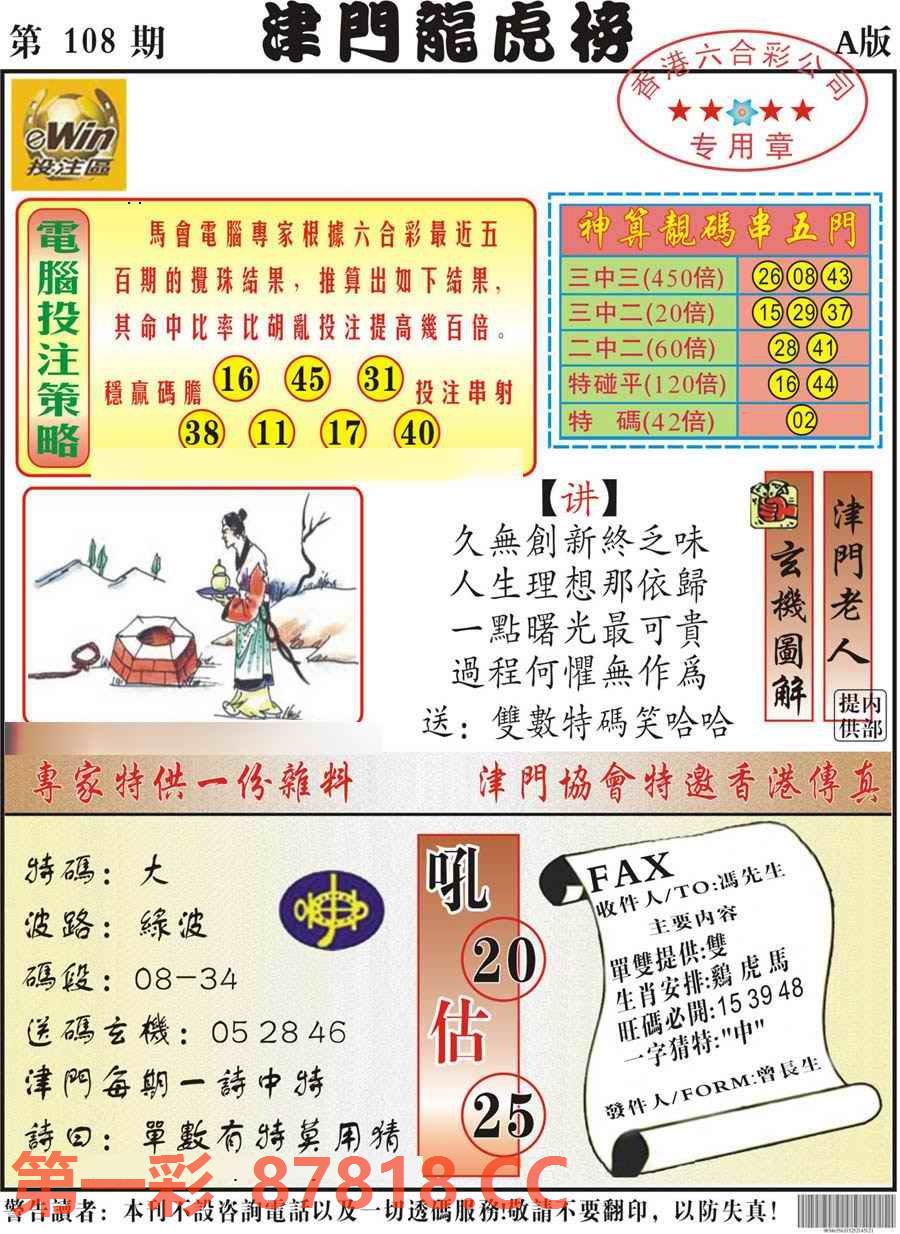 第 108 期
津門龍虎榜
A版
香港六合彩公司
专用章
eWin
投注區
電腦投注策略
馬會電腦專家根據六合彩最近五
百期的攪珠結果，推算出如下結果，
其命中比率比胡亂投注提高幾百倍。
穩贏碼膽 16 45 31 投注串射
38 11 17 40
神算靚碼串五門
三中三(450倍) 26 08 43
三中二(20倍) 15 29 37
二中二(60倍) 28 41
特碰平(120倍) 16 44
特 碼(42倍) 02
【讲】
久無創新終乏味
人生理想那依歸
一點曙光最可貴
過程何懼無作爲
送：雙數特碼笑哈哈
玄機圖解
津門老人
内部提供
專家特供一份雜料
津門協會特邀香港傳真
特碼：大
波路：綠波
碼段：08—34
送碼玄機：05 28 46
津門每期一詩中特
詩曰：單數有特莫用猜
吼
20
估
25
FAX
收件人/TO:馮先生
主要内容
單雙提供:雙
生肖安排:鷄虎馬
旺碼必開:15 39 48
一字猜特:"中"
發件人/FORM:曾長生
第一彩 87818.CC
警告讀者：本刊不設咨詢電話以及一切透碼服務!敬請不要翻印，以防失真!